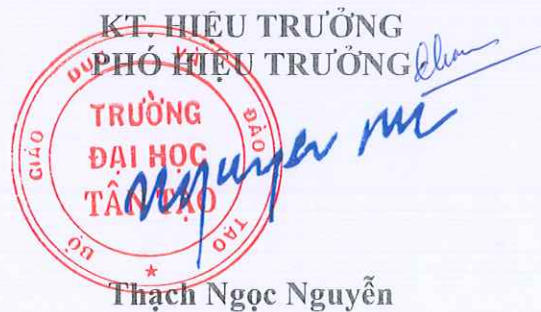 KT. HIỆU TRƯỞNG
PHÓ HIỆU TRƯỞNG
BỘ GIÁO DỤC VÀ ĐÀO TẠO
TRƯỜNG
ĐẠI HỌC
TÂN TẠO
Nguyen
Thạch Ngọc Nguyễn